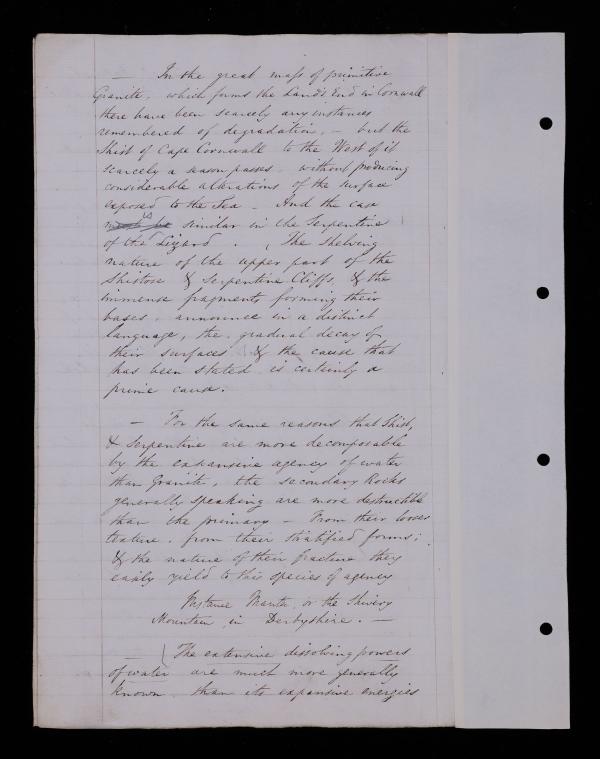 — In the great mass of primitive
Granite, which forms the Lands End in Cornwall
there have been scarcely any instances
remembered of degradation, — but the
Shist of Cape Cornwall to the West of it
scarcely a season passes without producing
considerable alterations of the surface
exposed to the Sea — And the case
must be is similar in the Serpentine
of the Lizard . The Shelving
nature of the upper part of the
Shistose & Serpentine Cliffs, & the
immense fragments forming their
bases, announce in a distinct
language, the gradual decay of
their surfaces & the cause that
has been stated is certainly a
prime cause.
— For the same reasons that Shist,
& Serpentine are more decomposable
by the expansive agency of water
than Granite, the secondary Rocks
generally speaking are more destructible
than the primary — From their looser
texture, from their stratified forms;
& the nature of their fracture they
easily yield to this species of agency
Instance Mamtor, or the Shivery
Mountain in Derbyshire. —
— The extensive dissolving powers
of water are much more generally
known than its expansive energies